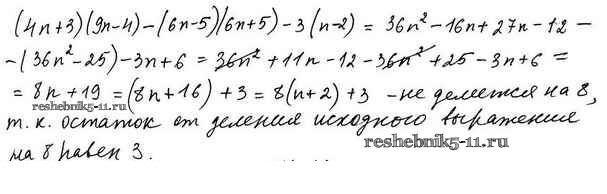 (4n+3)(9n-4)-(6n-5)(6n+5)-3(n-2) = 36n²-16n+27n-12-
-(36n²-25)-3n+6 = 36n²+11n-12-36n²+25-3n+6 =
= 8n+19 = (8n+16)+3 = 8(n+2)+3 - не делится на 8,
reshebnik5-11.ru
т.к. остаток от деления исходного выражения
reshebnik5-11.ru
на 8 равен 3.